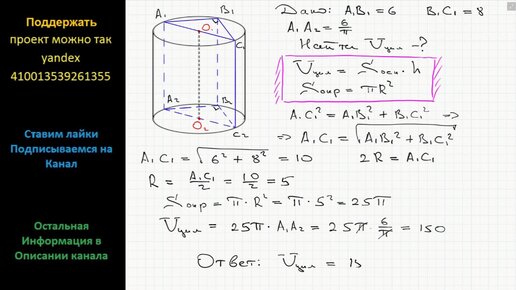 Поддержать
проект можно так
yandex
410013539261355
Ставим лайки
Подписываемся на
Канал
Остальная
Информация в
Описании канала
A₁ B₁
O₁
C₁
A₂ B₂
O₂
C₂
Дано: A₁B₁ = 6 B₁C₁ = 8
A₁A₂ = 6/π
Найти Vцил - ?
Vцил = Sосн · h
Sокр = πR²
A₁C₁² = A₁B₁² + B₁C₁² ⇒
⇒ A₁C₁ = √(A₁B₁² + B₁C₁²)
A₁C₁ = √(6² + 8²) = 10 2R = A₁C₁
R = A₁C₁/2 = 10/2 = 5
Sокр = π · R² = π · 5² = 25π
Vцил = 25π · A₁A₂ = 25π · 6/π = 150
Ответ: Vцил = 15